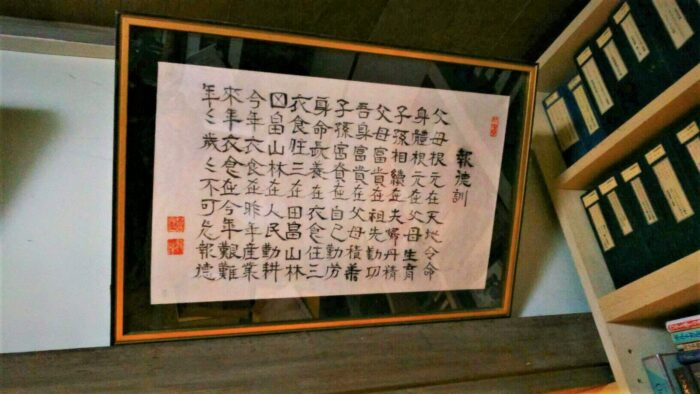 報徳訓
父母根元在天地令命
身體根元在父母生育
子孫相續在夫婦丹精
父母富貴在祖先勤功
吾身富貴在父母積善
子孫富貴在自己勤労
身命長養在衣食住三
衣食住三在田畠山林
田畠山林在人民勤耕
今年衣食在昨年産業
来年衣食在今年艱難
年々歳々不可忘報徳